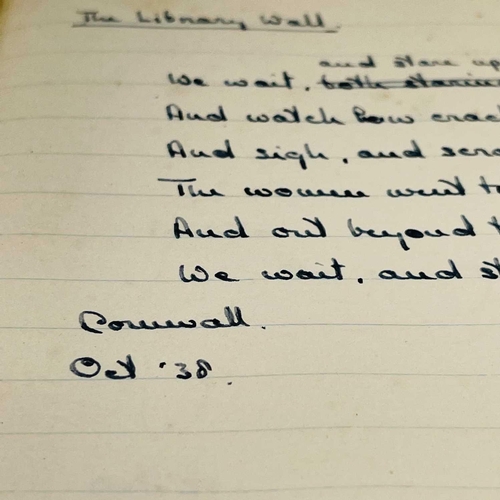 The Library Wall.
and stare up
We wait, both staring
And watch how crac
And sigh, and scra
The women went t
And out beyond t
We wait, and st
Cornwall.
Oct '38.